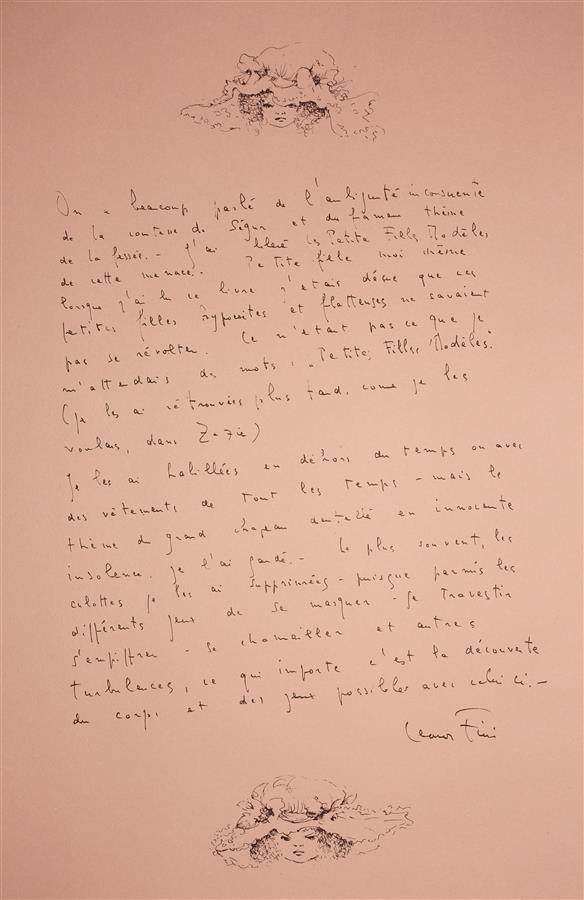 On a beaucoup parlé de l'ambiguité inconsciente
de la comtesse de Ségur et du fameux thème
de la fessée. – J'ai libéré les Petites Filles Modèles
de cette menace. Petite fille moi même
lorsque j'ai lu ce livre j'etais déçue que ces
petites filles hypocrites et flatteuses ne savaient
pas se révolter. Ce n'etait pas ce que je
m'attendais des mots: "Petites Filles Modèles."
(je les ai rétrouvées plus tard, come je les
voulais, dans Zazie)
Je les ai habillées en déhors du temps ou avec
des vêtements de tout les temps – mais le
thème du grand chapeau dentelé en innocente
insolence, je l'ai gardé. – Le plus souvent, les
culottes je les ai supprimées – puisque parmis les
différents jeux de se masquer – se travestir
s'empiffrer – se chamailler et autres
turbulences, ce qui importe c'est la découverte
du corps et des jeux possibles avec celui ci. –
Leonor Fini